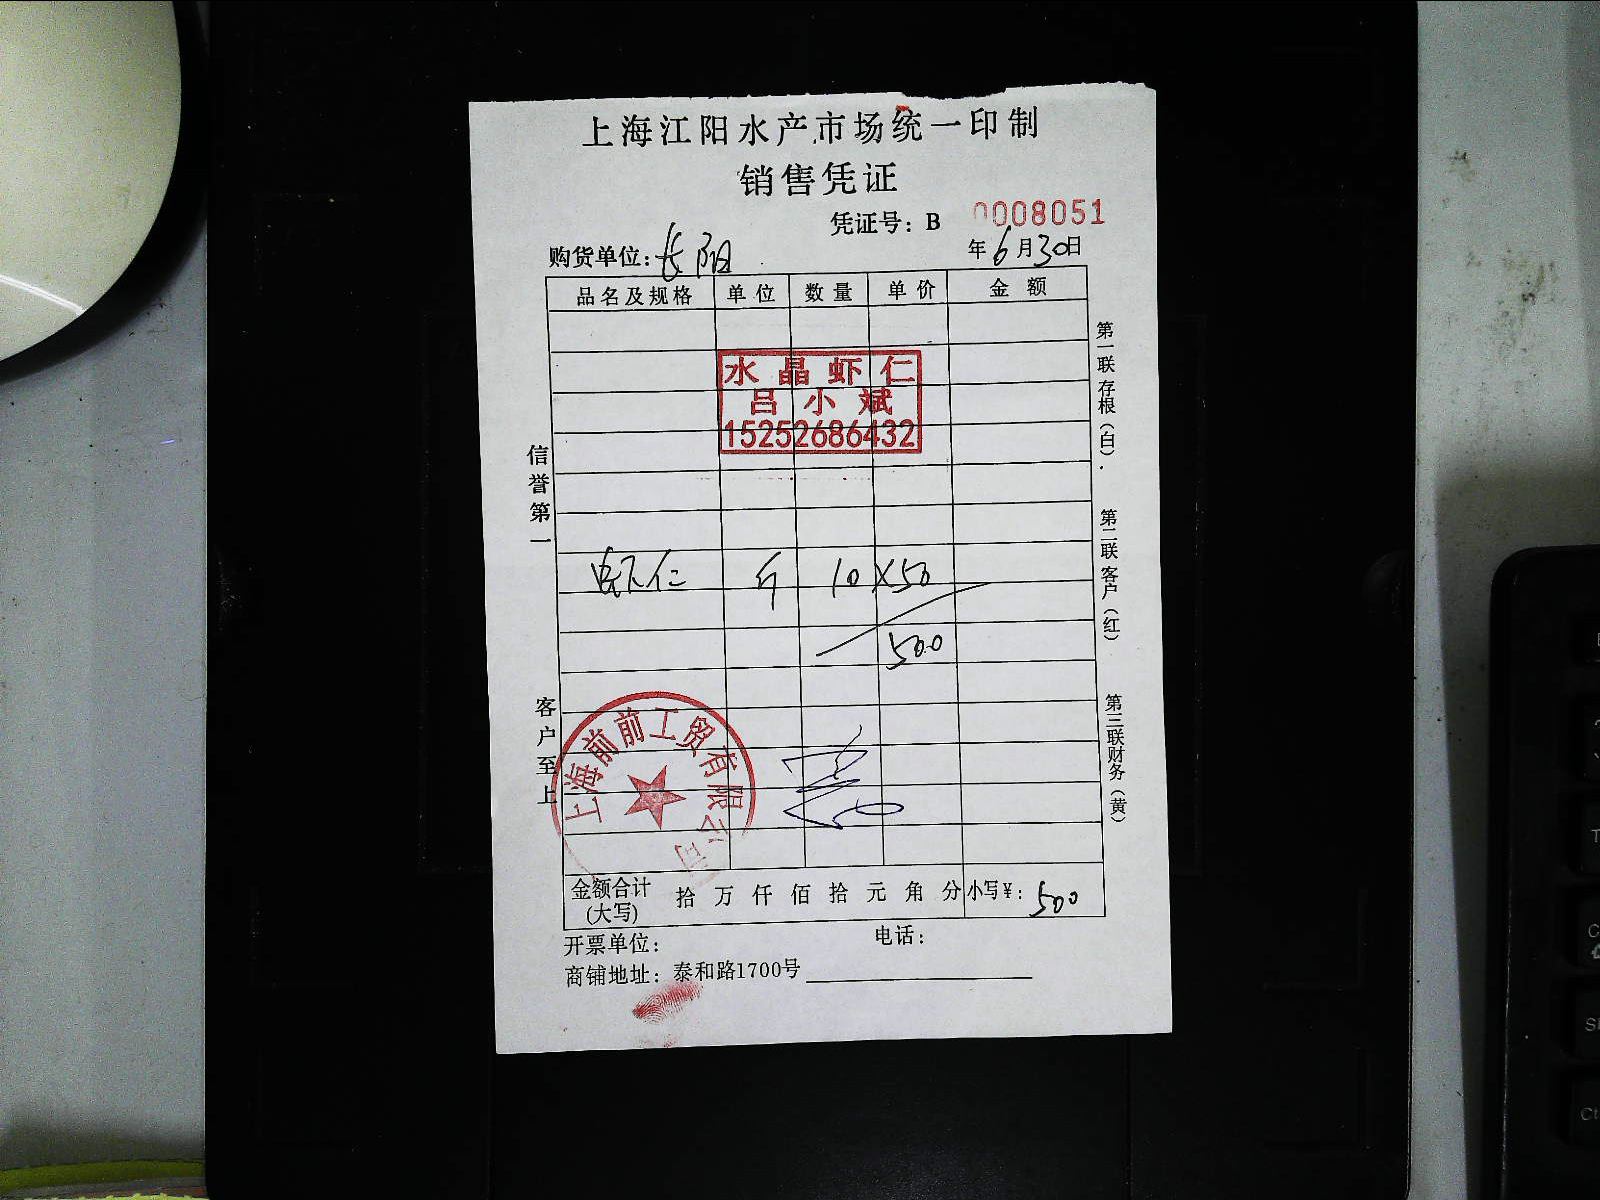 上海江阳水产市场统一印制
销售凭证
凭证号：B 0008051
购货单位：长阳 年6月30日
品名及规格 单位 数量 单价 金额
水晶虾仁
吕小斌
15252686432
虾仁 斤 10×50
500
上海前前工贸有限公司
金额合计(大写) 拾 万 仟 佰 拾 元 角 分 小写¥：500
开票单位： 电话：
商铺地址：泰和路1700号
信誉第一
客户至上
第一联存根（白）．
第二联客户（红）
第三联财务（黄）